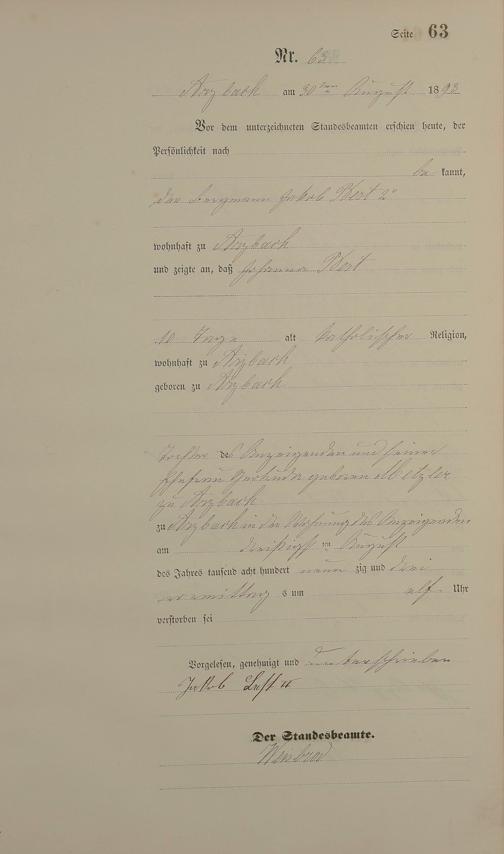 Seite 63
Nr. 63
Arzbach am 30ten August 1893
Vor dem unterzeichneten Standesbeamten erschien heute, der
Persönlichkeit nach
be kannt,
der Bergmann Jakob
wohnhaft zu Arzbach
und zeigte an, daß Johanna
10 Tage alt katholischer Religion,
wohnhaft zu Arzbach
geboren zu Arzbach
Tochter des Anzeigenden und seiner
Ehefrau Gertrude geborene Metzler
zu Arzbach
zu Arzbach in der Wohnung des Anzeigenden
am dreißigsten August
des Jahres tausend acht hundert neun zig und drei
vormittag s um elf Uhr
verstorben sei
Vorgelesen, genehmigt und unterschrieben
Jakob
Der Standesbeamte.